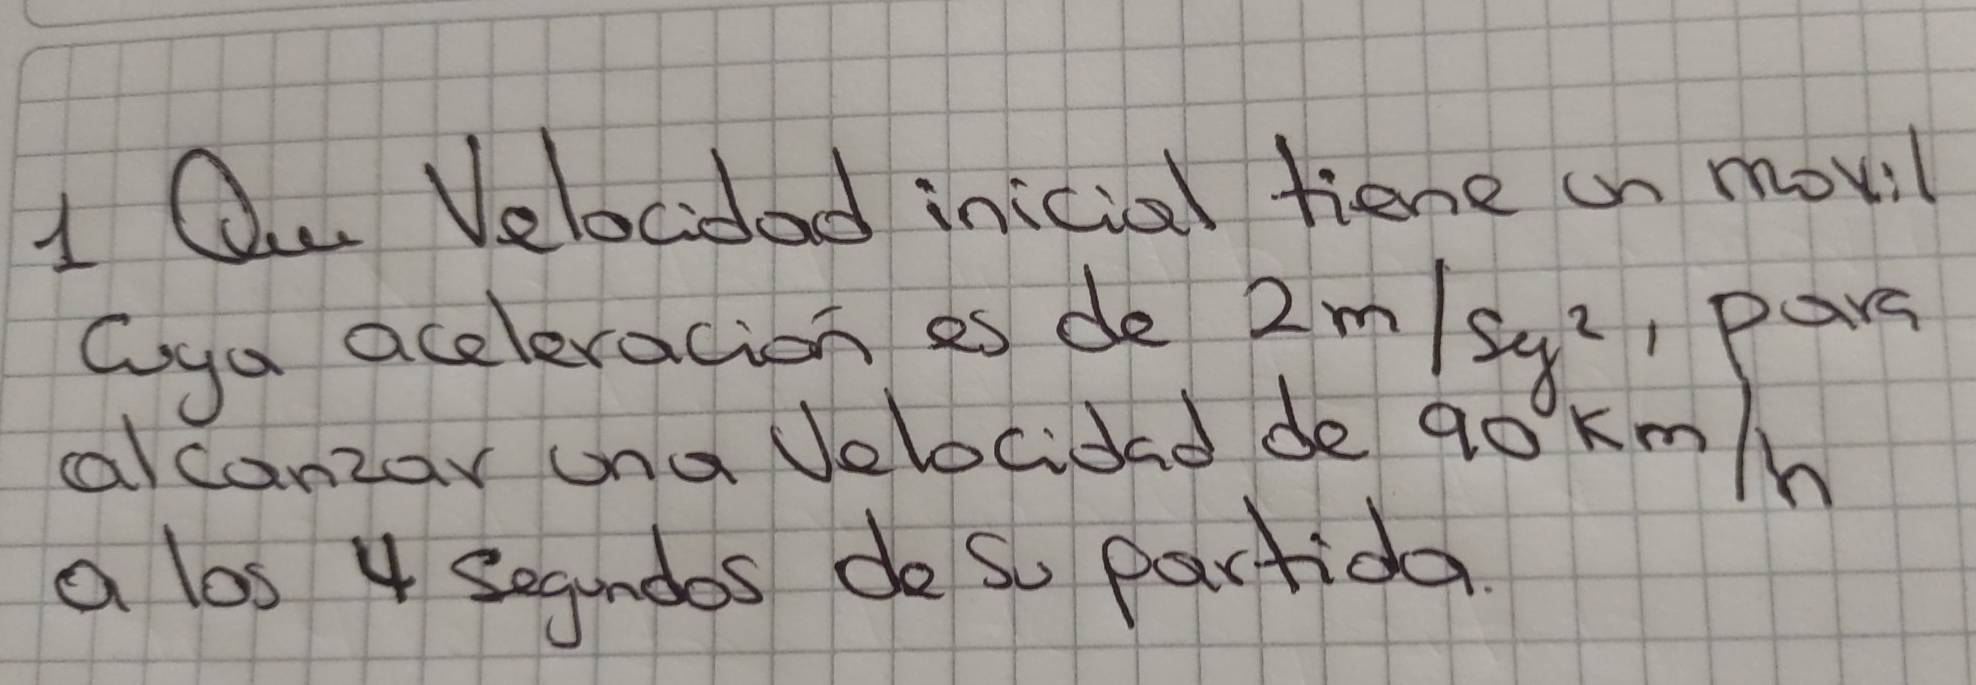 1 Que Velocidad inicial tiene un movil
Cuya aceleración es de 2m/sg², para
alcanzar una Velocidad de 90 Km/h
a los 4 segundos de su partida.